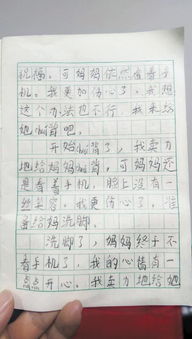 机撮。可妈妈依然看着手
机。我更加伤心了。我想
这个办法也不行，我来给
她捶背吧。
开始捶背了，我卖力
地给妈妈捶背，可妈妈还
是看着手机，脸上没有一
丝笑容。我更伤心了，准
备给妈洗脚。
洗脚了，妈妈终于不
看手机了，我的心里有一
点点开心。我卖力地给她